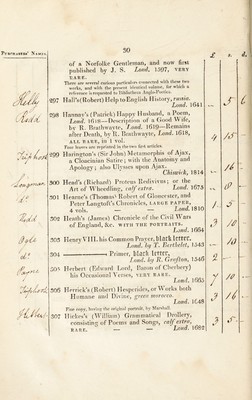 PURCHASERS' NAMES
30
£ s. d.
of a Norfolke Gentleman, and now first
published by J. S. Lond. 1597, VERY
RARE.
There are several various particulars connected with these two
works, and with the present identical volume, for which a
reference is requested to Bibliotheca Anglo-Poetica.
297 Hall's (Robert) Help to English History, russia.
Lond. 1641
298 Hannay's (Patrick) Happy Husband, a Poem,
Lond. 1618—Description of a Good Wife,
by R. Brathwayte, Lond. 1619—Remains
after Death, by R. Brathwayte, Lond. 1618,
ALL RARE, in 1 vol.
Four leaves are reprinted in the two first articles
299 Harington's (Sir John) Metamorphosis of Ajax,
a Cloucinian Satire; with the Anatomy and
Apology; also Ulysses upon Ajax.
Chiswick, 1814
300 Head's (Richard) Proteus Redivivus; or the
Art of Wheedling, calf extra. Lond. 1675
301 Hearne's (Thomas) Robert of Gloucester, and
Peter Langtoft's Chronicles, LARGE PAPER,
4 vols. Lond. 1810
302 Heath's (James) Chronicle of the Civil Wars
of England, &c. WITH THE PORTRAITS.
Lond. 1664
303 Henry VIII. his Common Prayer, black letter.
Lond. by T. Berthelet, 1545
304 Primer, black letter.
Lond. by R. Graefton, 1546
305 Herbert (Edward Lord, Baron of Cherbery)
his Occasional Verses, VERY RARE.
Lond. 1665
306 Herrick's (Robert) Hesperides, or Works both
Humane and Divine, green morocco.
Lond. 1648
Fine copy, having the original portrait, by Marshall.
307 Hickes's (William) Grammatical Drollery,
consisting of Poems and Songs, calf extra,
RARE. Lond. 1682